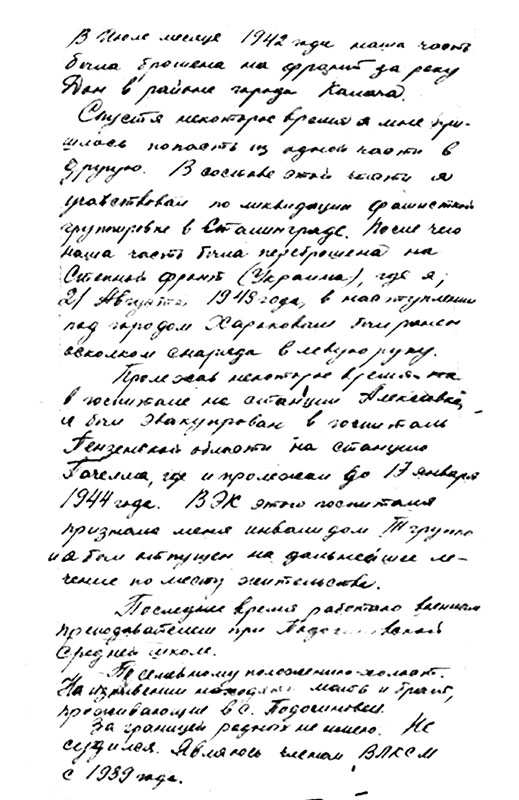 В Июле месяце 1942 года наша часть
была брошена на фронт за реку
Дон в районе города Калача.
Спустя некоторое время и мне при-
шлось попасть из одной части в
другую. В составе этой части я
участвовал по ликвидации фашисткой
группировке в Сталинграде. После чего
наша часть была переброшена на
Степной фронт (Украина), где я,
21 Августа 1943 года, в наступлении
под городом Харьковом был ранен
осколком снаряда в левую руку.
Пролежав некоторое время
в госпитале на станции Алексеевка,
я был эвакуирован в госпиталь
Пензенской области на станцию
где и пролежал до 17 января
1944 года. ВЭК этого госпиталя
признала меня инвалидом III группы
и я был отпущен на дальнейшее ле-
чение по месту жительства.
Последнее время работаю военным
преподавателем при
средней школе.
По семейному положению - холост.
На иждивении находятся мать и братья,
проживающие в с. Подосиновке.
За границей родных не имею. Не
судился. Являюсь членом ВЛКСМ
с 1939 года.